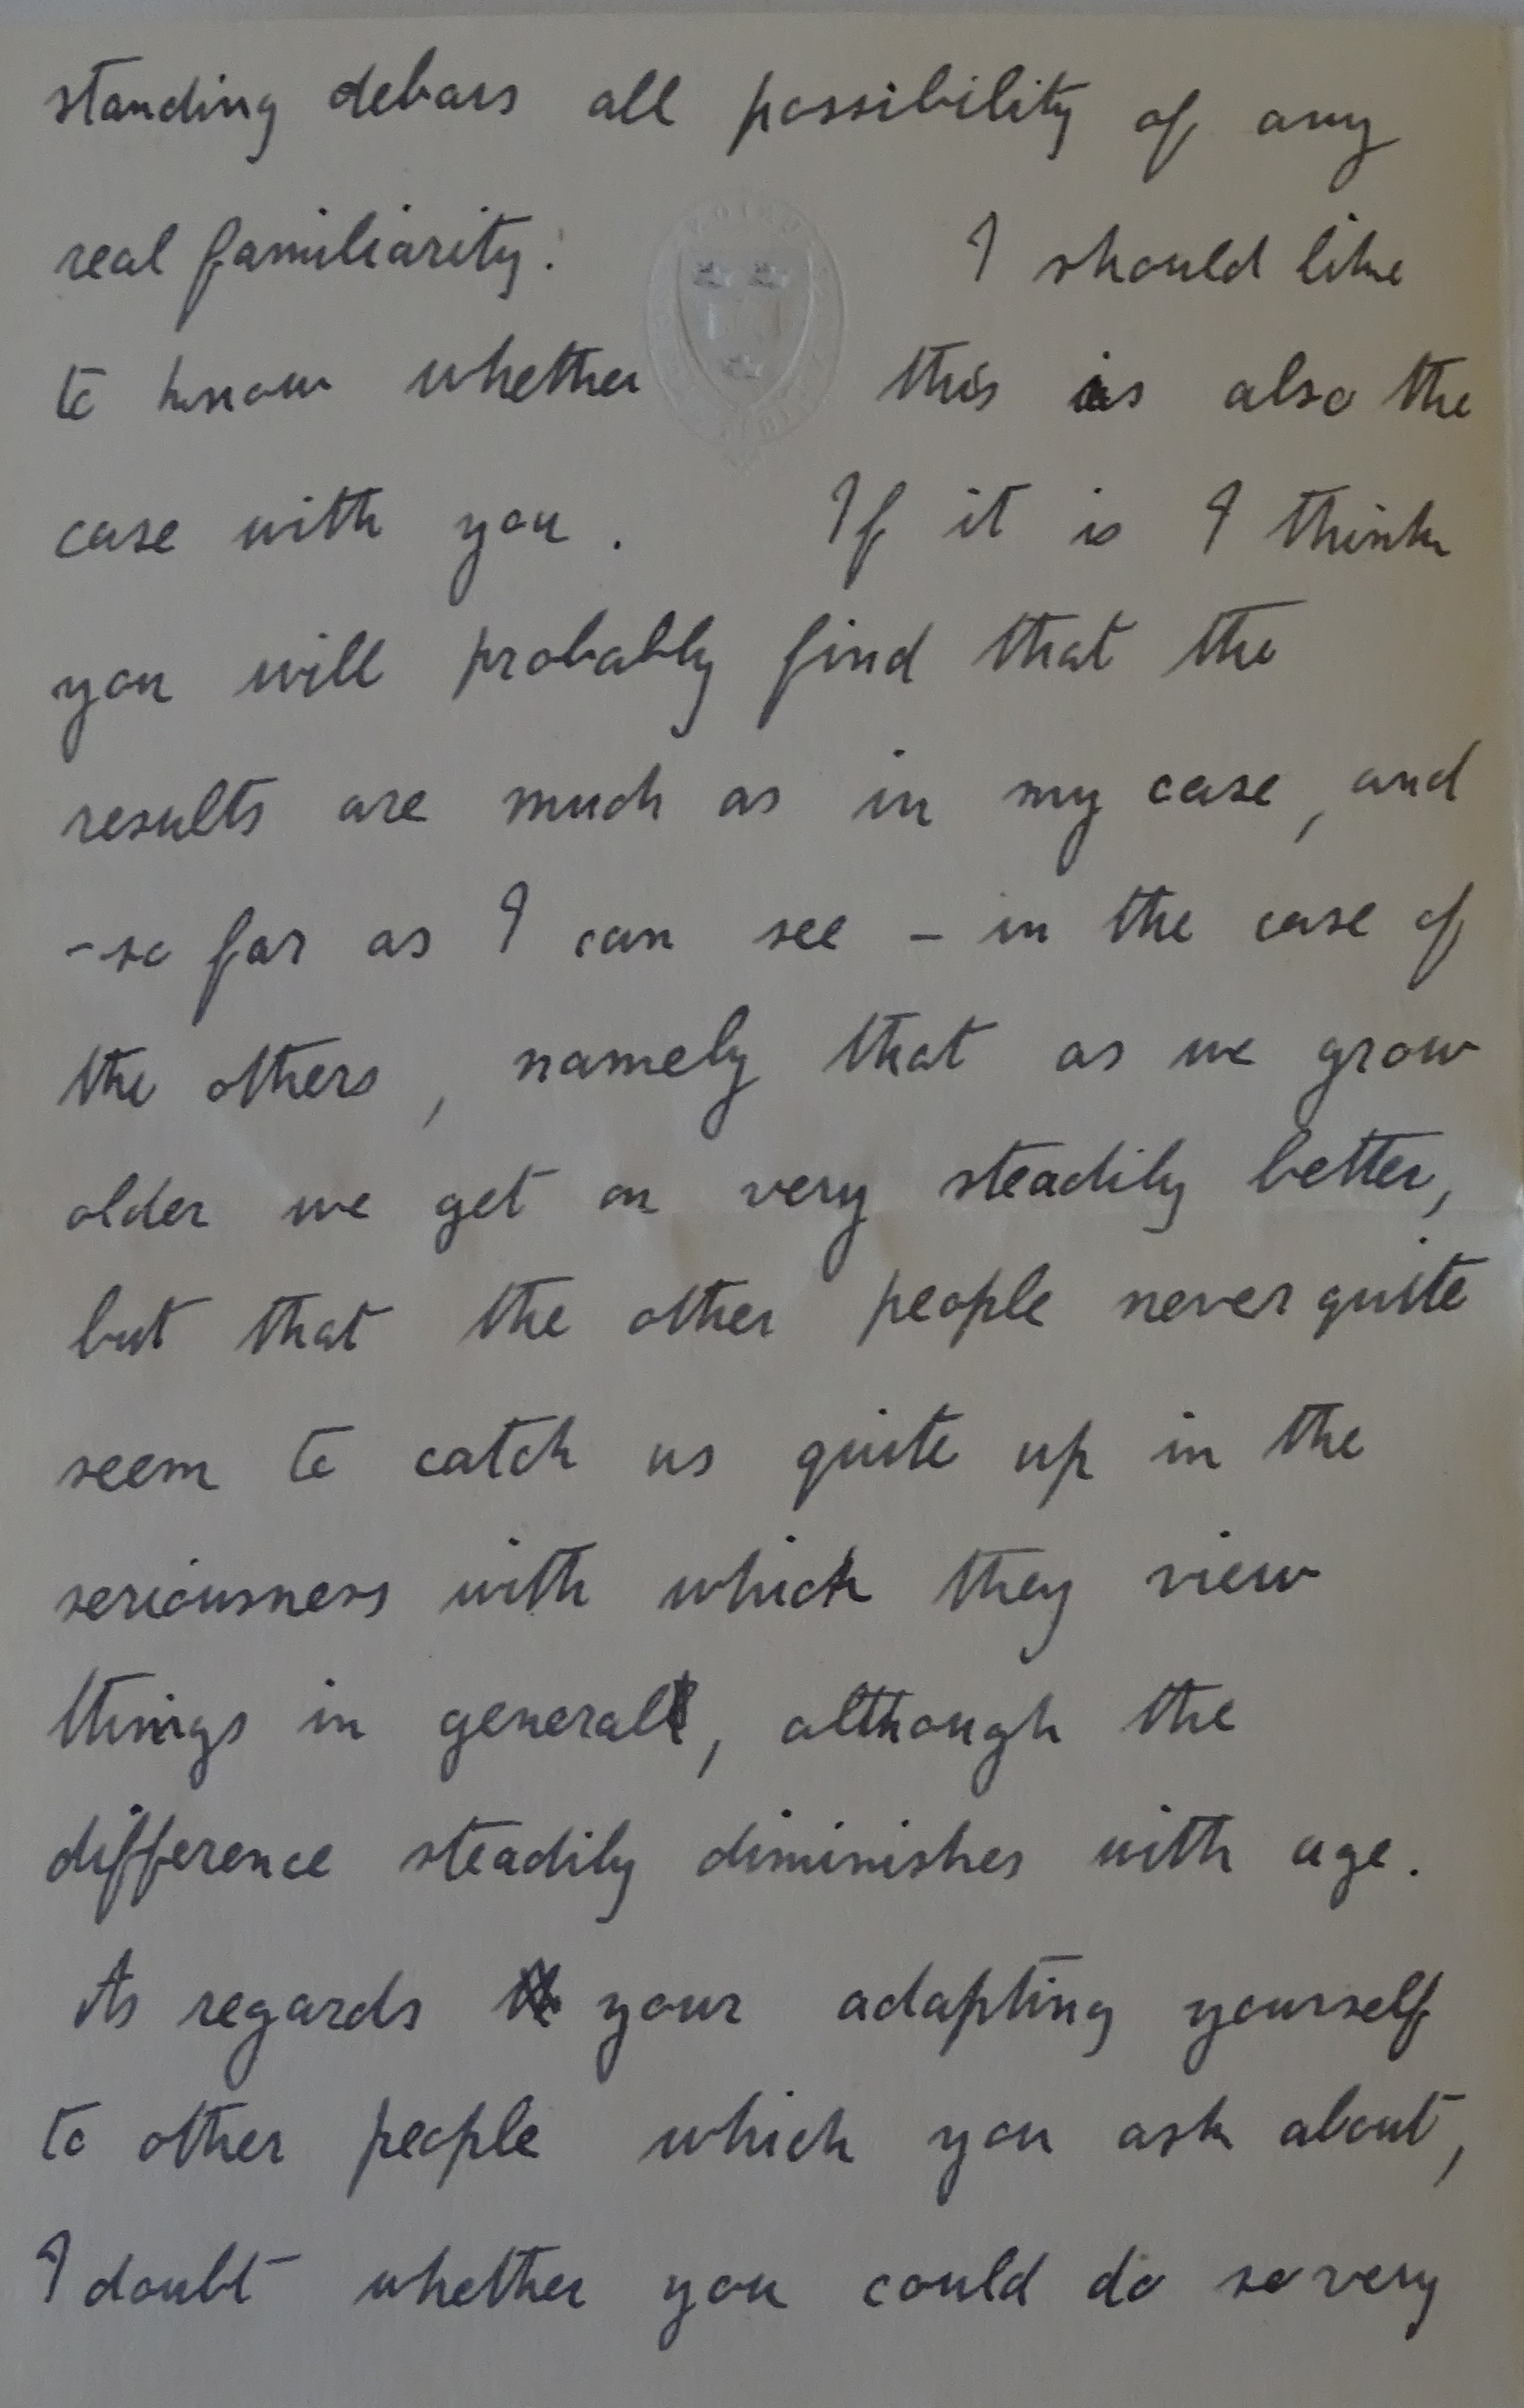 standing debars all possibility of any
real familiarity. I should like
to know whether this is also the
case with you. If it is I think
you will probably find that the
results are much as in my case, and
- so far as I can see - in the case of
the others, namely that as we grow
older we get on very steadily better,
but that the other people never quite
seem to catch us quite up in the
seriousness with which they view
things in general, although the
difference steadily diminishes with age.
As regards your adapting yourself
to other people which you ask about,
I doubt whether you could do so very